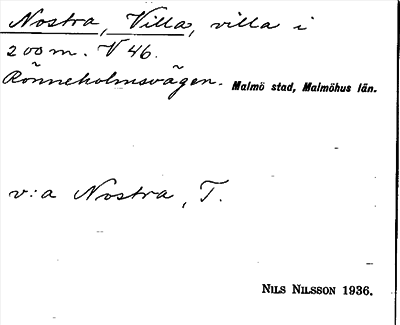 Nostra, Villa, villa i
200 m. V 46.
Rönneholmsvägen. Malmö stad, Malmöhus län.
v:a Nostra, T.
NILS NILSSON 1936.